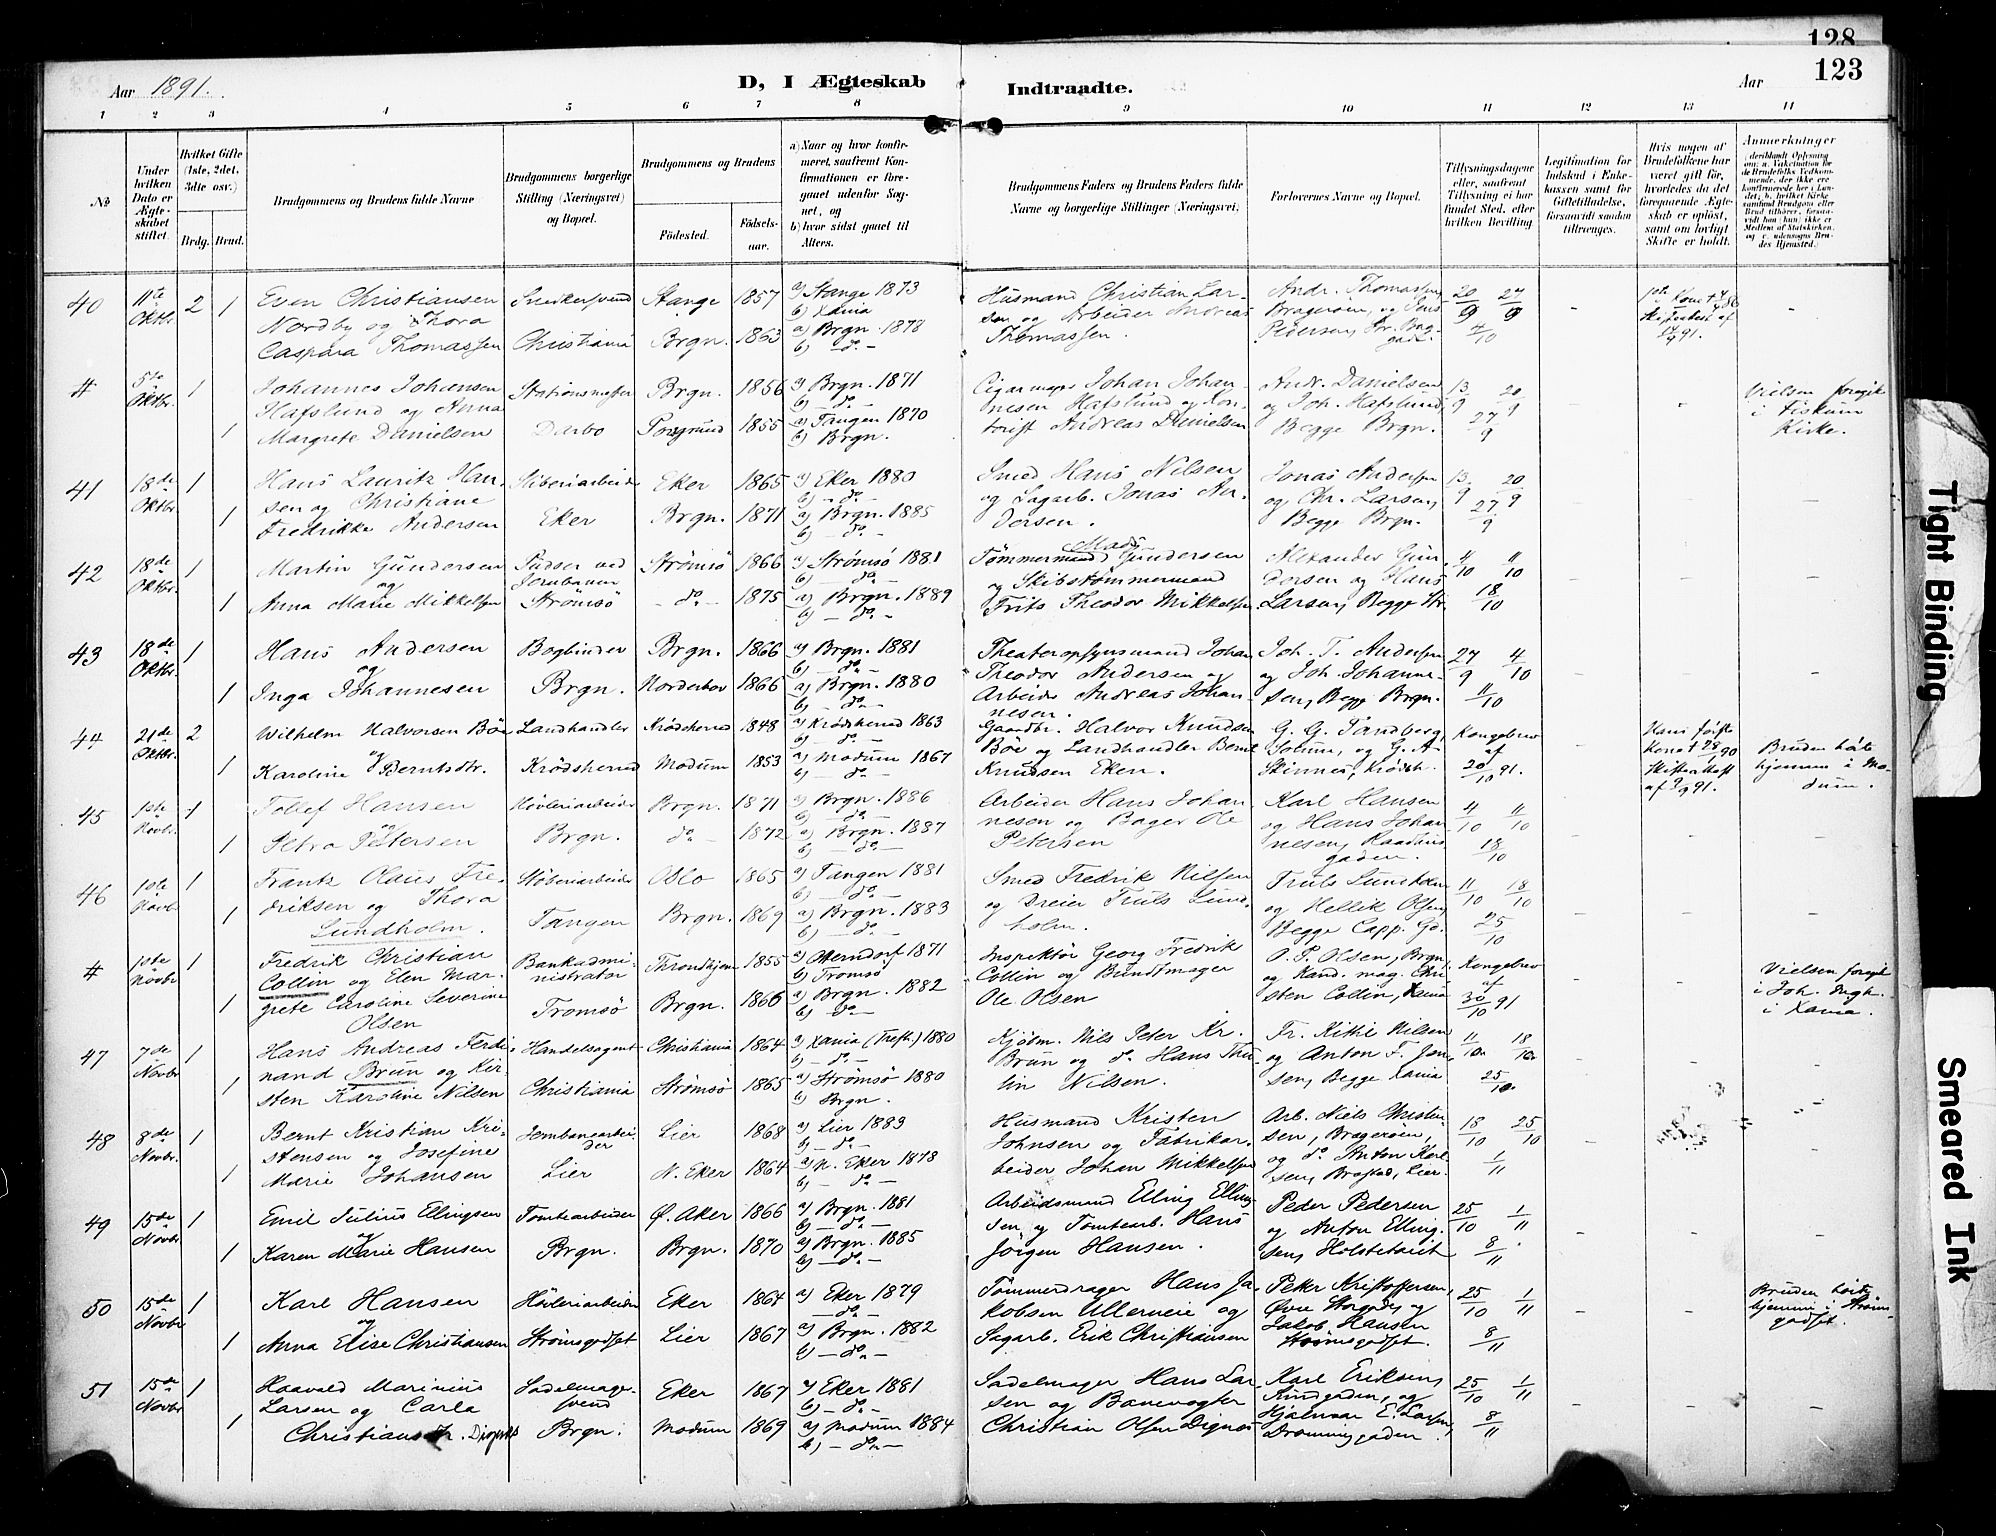 128
123
Aar 1891.
D, I Ægteskab Indtraadte.
Aar
1 2 3 4 5 6 7 8 9 10 11 12 13 14
No
Under hvilken Dato er Ægteskabet stiftet.
Hvilket Gifte (1ste, 2det, 3die osv.)
Brdg. Brud.
Brudgommens og Brudens fulde Navne
Brudgommens borgerlige Stilling (Næringsvei) og Bopæl.
Brudgommens og Brudens
Fødested. Fødselsaar.
a) Naar og hvor konfirmeret, saafremt Konfirmationen er foregaaet udenfor Sognet, og
b) hvor sidst gaaet til Alters.
Brudgommens Faders og Brudens Faders fulde Navne og borgerlige Stillinger (Næringsvei)
Forlovernes Navne og Bopæl.
Tillysningsdagene eller, saafremt Tillysning ei har fundet Sted, efter hvilken Bevilling
Legitimation for Indskud i Enkekassen samt for Giftetilladelse, forsaavidt saadan tiltrænges.
Hvis nogen af Brudefolkene har været gift før, hvorledes da det foregaaende Ægteskab er opløst, samt om lovligt Skifte er holdt.
Anmerkninger
40 11te Oktbr. 2 1
Even Christiansen Nordby og Thora Caspara Thomassen
Snedkersvend Christiania
Stange 1857 a) Stange 1873 b) Xania
Brgn. 1863 a) Brgn. 1878 b) - do -
Husmand Christian Larsen og Arbeider Andreas Thomassen.
Andr. Thomassen, Bragerøen, og Jens Pedersen, Str. Baggade.
20/9 27/9 4/10
# 5te Oktbr. 1 1
Johannes Johansen Hafslund og Anna Margrete Danielsen
Stationsmester Darbo
Brgn. 1856 a) Brgn. 1871 b) - do -
Porsgrund 1855 a) Tangen 1870 b) Brgn.
Cigarmager Johan Johannesen Hafslund og Kontorist Andreas Danielsen
Andr. Danielsen og Joh. Hafslund, Begge Brgn.
13/9 20/9 27/9
Vielsen foregik i Fiskum Kirke.
41 18de Oktbr. 1 1
Hans Lauritz Hansen og Christiane Fredrikke Andersen
Sliberiarbeider Eker
Eker 1865 a) Eker 1880 b) - do -
Brgn. 1871 a) Brgn. 1885 b) - do -
Smed Hans Nilsen og Sagarb. Jonas Andersen.
Jonas Andersen og Chr. Larsen, Begge Brgn.
13/9 20/9 27/9
42 18de Oktbr. 1 1
Martin Gundersen og Anna Marie Mikkelsen
Pudser ved Jernbanen Strømsø
Strømsø 1866 a) Strømsø 1881 b) - do -
- do - 1875 a) Brgn. 1889 b) - do -
Tømmermand Mads Gundersen og Skibstømmermand Frits Theodor Mikkelsen
Alexander Gundersen og Hans Larsen, Begge Str.
4/10 11/10 18/10
43 18de Oktbr. 1 1
Hans Andersen og Inga Johannesen
Bogbinder Brgn.
Brgn. 1866 a) Brgn. 1881 b) - do -
Norderhov 1866 a) Brgn. 1880 b) - do -
Theateropsynsmand Johan Theodor Andersen og Arbeider Andreas Johannesen.
Joh. T. Andersen og Joh. Johannesen, Begge Brgn.
27/9 4/10 11/10
44 21de Oktbr. 2 1
Wilhelm Halvorsen Bøe og Karoline Berntsdtr.
Landhandler Krødsherred
Krødsherred 1848 a) Krødsherred 1863 b) - do -
Modum 1853 a) Modum 1867 b) - do -
Gaardbr. Halvor Knudsen Bøe og Landhandler Bernt Knudsen Eken.
G. G. Sandberg, Solum, og G. A. Skinnes, Krødsh.
Kongebrev af 20/10 91.
Hans første Kone † 28/ 90 Skifteattest af 91.
Bruden hørte hjemme i Modum.
45 1ste Novbr. 1 1
Tollef Hansen og Petra Petersen
Høvleriarbeider Brgn.
Brgn. 1871 a) Brgn. 1886 b) - do -
do - 1872 a) Brgn. 1887 b) - do -
Arbeider Hans Johannesen og Bager Ole Petersen
Karl Hansen og Hans Johannesen, Raadhusgaden.
4/10 11/10 18/10
46 1ste Novb. 1 1
Frantz Olaus Fredriksen og Thora Lundholm.
Støberiarbeider Tangen
Oslo 1865 a) Tangen 1881 b) - do -
Brgn. 1869 a) Brgn. 1883 b) - do -
Smed Fredrik Nilsen og Dreier Truls Lundholm.
Truls Lundholm og Hellik Olsen, Begge Capp. Gd.
11/10 18/10 25/10
# 1ste Novbr. 1 1
Fredrik Christian Collin og Elen Margrete Caroline Severine Olsen
Bankadministrator Tromsø
Throndhjem 1855 a) Oterndorf 1871 b) Tromsø
Brgn. 1866 a) Brgn. 1882 b) do -
Inspektør Georg Fredrik Collin og Bundtmager Ole Olsen
O. P. Olsen, Brgn., og Kand. mag. Christen Collin, Xania
Kongebrev af 30/10 91
Vielsen foregik i Joh. Mgh. i Xania.
47 7de Novbr. 1 1
Hans Andreas Ferdinand Brun og Kirsten Karoline Nilsen
Handelsagent Christiania
Christiania 1864 a) Xania (Trefk.) 1880 b) - do -
Strømsø 1865 a) Strømsø 1880 b) Brgn.
Kjøbm. Nils Peter Kr. Brun og do. Hans Thulin Nilsen.
Fr. Kithi Nilsen og Anton F. Jensen, Begge Xania
11/10 18/10 25/10
48 8de Novbr. 1 1
Bernt Kristian Kristensen og Josefine Marie Johansen
Jernbanearbeider Lier
Lier 1868 a) Lier 1883 b) - do -
N. Eker 1864 a) N. Eker 1878 b) - do -
Husmand Kristen Johnsen og Fabrikarbeider Johan Mikkelsen
Arb. Niels Christensen, Bragerøen, og do. Anton Karlsen, Brastad, Lier.
18/10 25/10 1/11
49 15de Novbr. 1 1
Emil Julius Ellingsen og Karen Marie Hansen
Tomtearbeider Brgn.
Ø. Aker 1866 a) Brgn. 1881 b) - do -
Brgn. 1870 a) Brgn. 1885 b) - do -
Arbeidsmand Elling Ellingsen og Tomtearb. Hans Jörgen Hansen.
Peder Pedersen og Anton Ellingsen, Holstetøiet
25/10 1/11 8/11
50 15de Novbr 1 1
Karl Hansen og Anna Elise Christiansen
Høvleriarbeider Strømsgodset
Eker 1864 a) Eker 1879 - do -
Lier 1867 a) Brgn. 1882 b) - do -
Tømmerdrager Hans Jakobsen Ullerneie og Sagarb. Erik Christiansen
Peter Kristoffersen, Øvre Storgade, og Jakob Hansen Strømsgodset.
25/10 1/11 8/11
Bruden hørte hjemme i Strømsgodset.
51 15de Novbr 1 1
Haavald Marinius Larsen og Carla Christiansdtr. Digness
Sadelmagersvend Brgn.
Eker 1867 a) Eker 1881 b) - do -
Modum 1869 a) Modum 1884 b) - do -
Sadelmager Hans Larsen og Banevogter Christian Olsen Dignæs
Karl Eriksen, Kindgaden, og Hjalmar E. Larsen, Dronninggaden.
25/10 1/11 8/11
Tight Binding
Smeared Ink